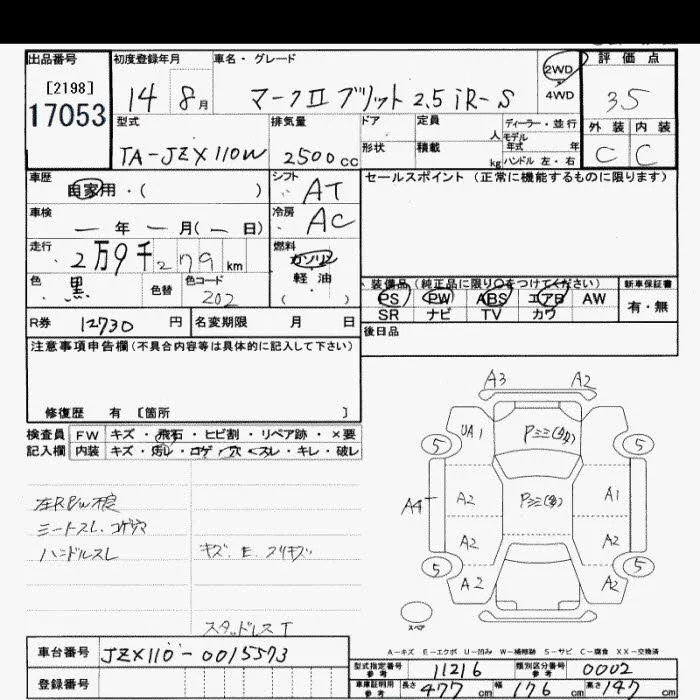 出品番号 初度登録年月 車名・グレード 2WD 評価点
[2198] 14 8月 マークⅡブリット 2.5 iR-S 4WD 3.5
17053
型式 排気量 ドア 定員 人 ディーラー・並行 外装 内装
TA-JZX110W 2500cc 形状 積載 kg モデル年式 年 C C
ハンドル 左・右
車歴 自家用・( ) シフト AT セールスポイント(正常に機能するものに限ります)
車検 ー年ー月(ー日) 冷房 AC
走行 2万9千279km 燃料 ガソリン
色 黒 色替 色コード 202 軽油 ( )
装備品(純正品に限り○をつけてください) 新車保証書
PS PW ABS エアB AW 有・無
SR ナビ TV カワ
R券 12730円 名変期限 月 日 後日品
注意事項申告欄(不具合内容等は具体的に記入して下さい)
修復歴 有 〔箇所 〕
検査員 FW キズ・飛石・ヒビ割・リペア跡・×要
記入欄 内装 キズ・汚レ・コゲ・穴・スレ・キレ・破レ
左RP/w不良
ミートスレ.コゲ穴
ハンドルスレ
キズ.E.スリキズ
スタッドレスT
A3 A2
UA1
5 5
A4 A2 A1
A2 A2
5 5
A2 A2
スペア
A-キズ E-エクボ U-凹み W-補修跡 S-サビ C-腐食 XX-交換済
車台番号 JZX110-0015573
登録番号
型式指定番号 参考 11216 類別区分番号 参考 0002
車庫証明用 参考 長さ 477cm 幅 176cm 高さ 147cm